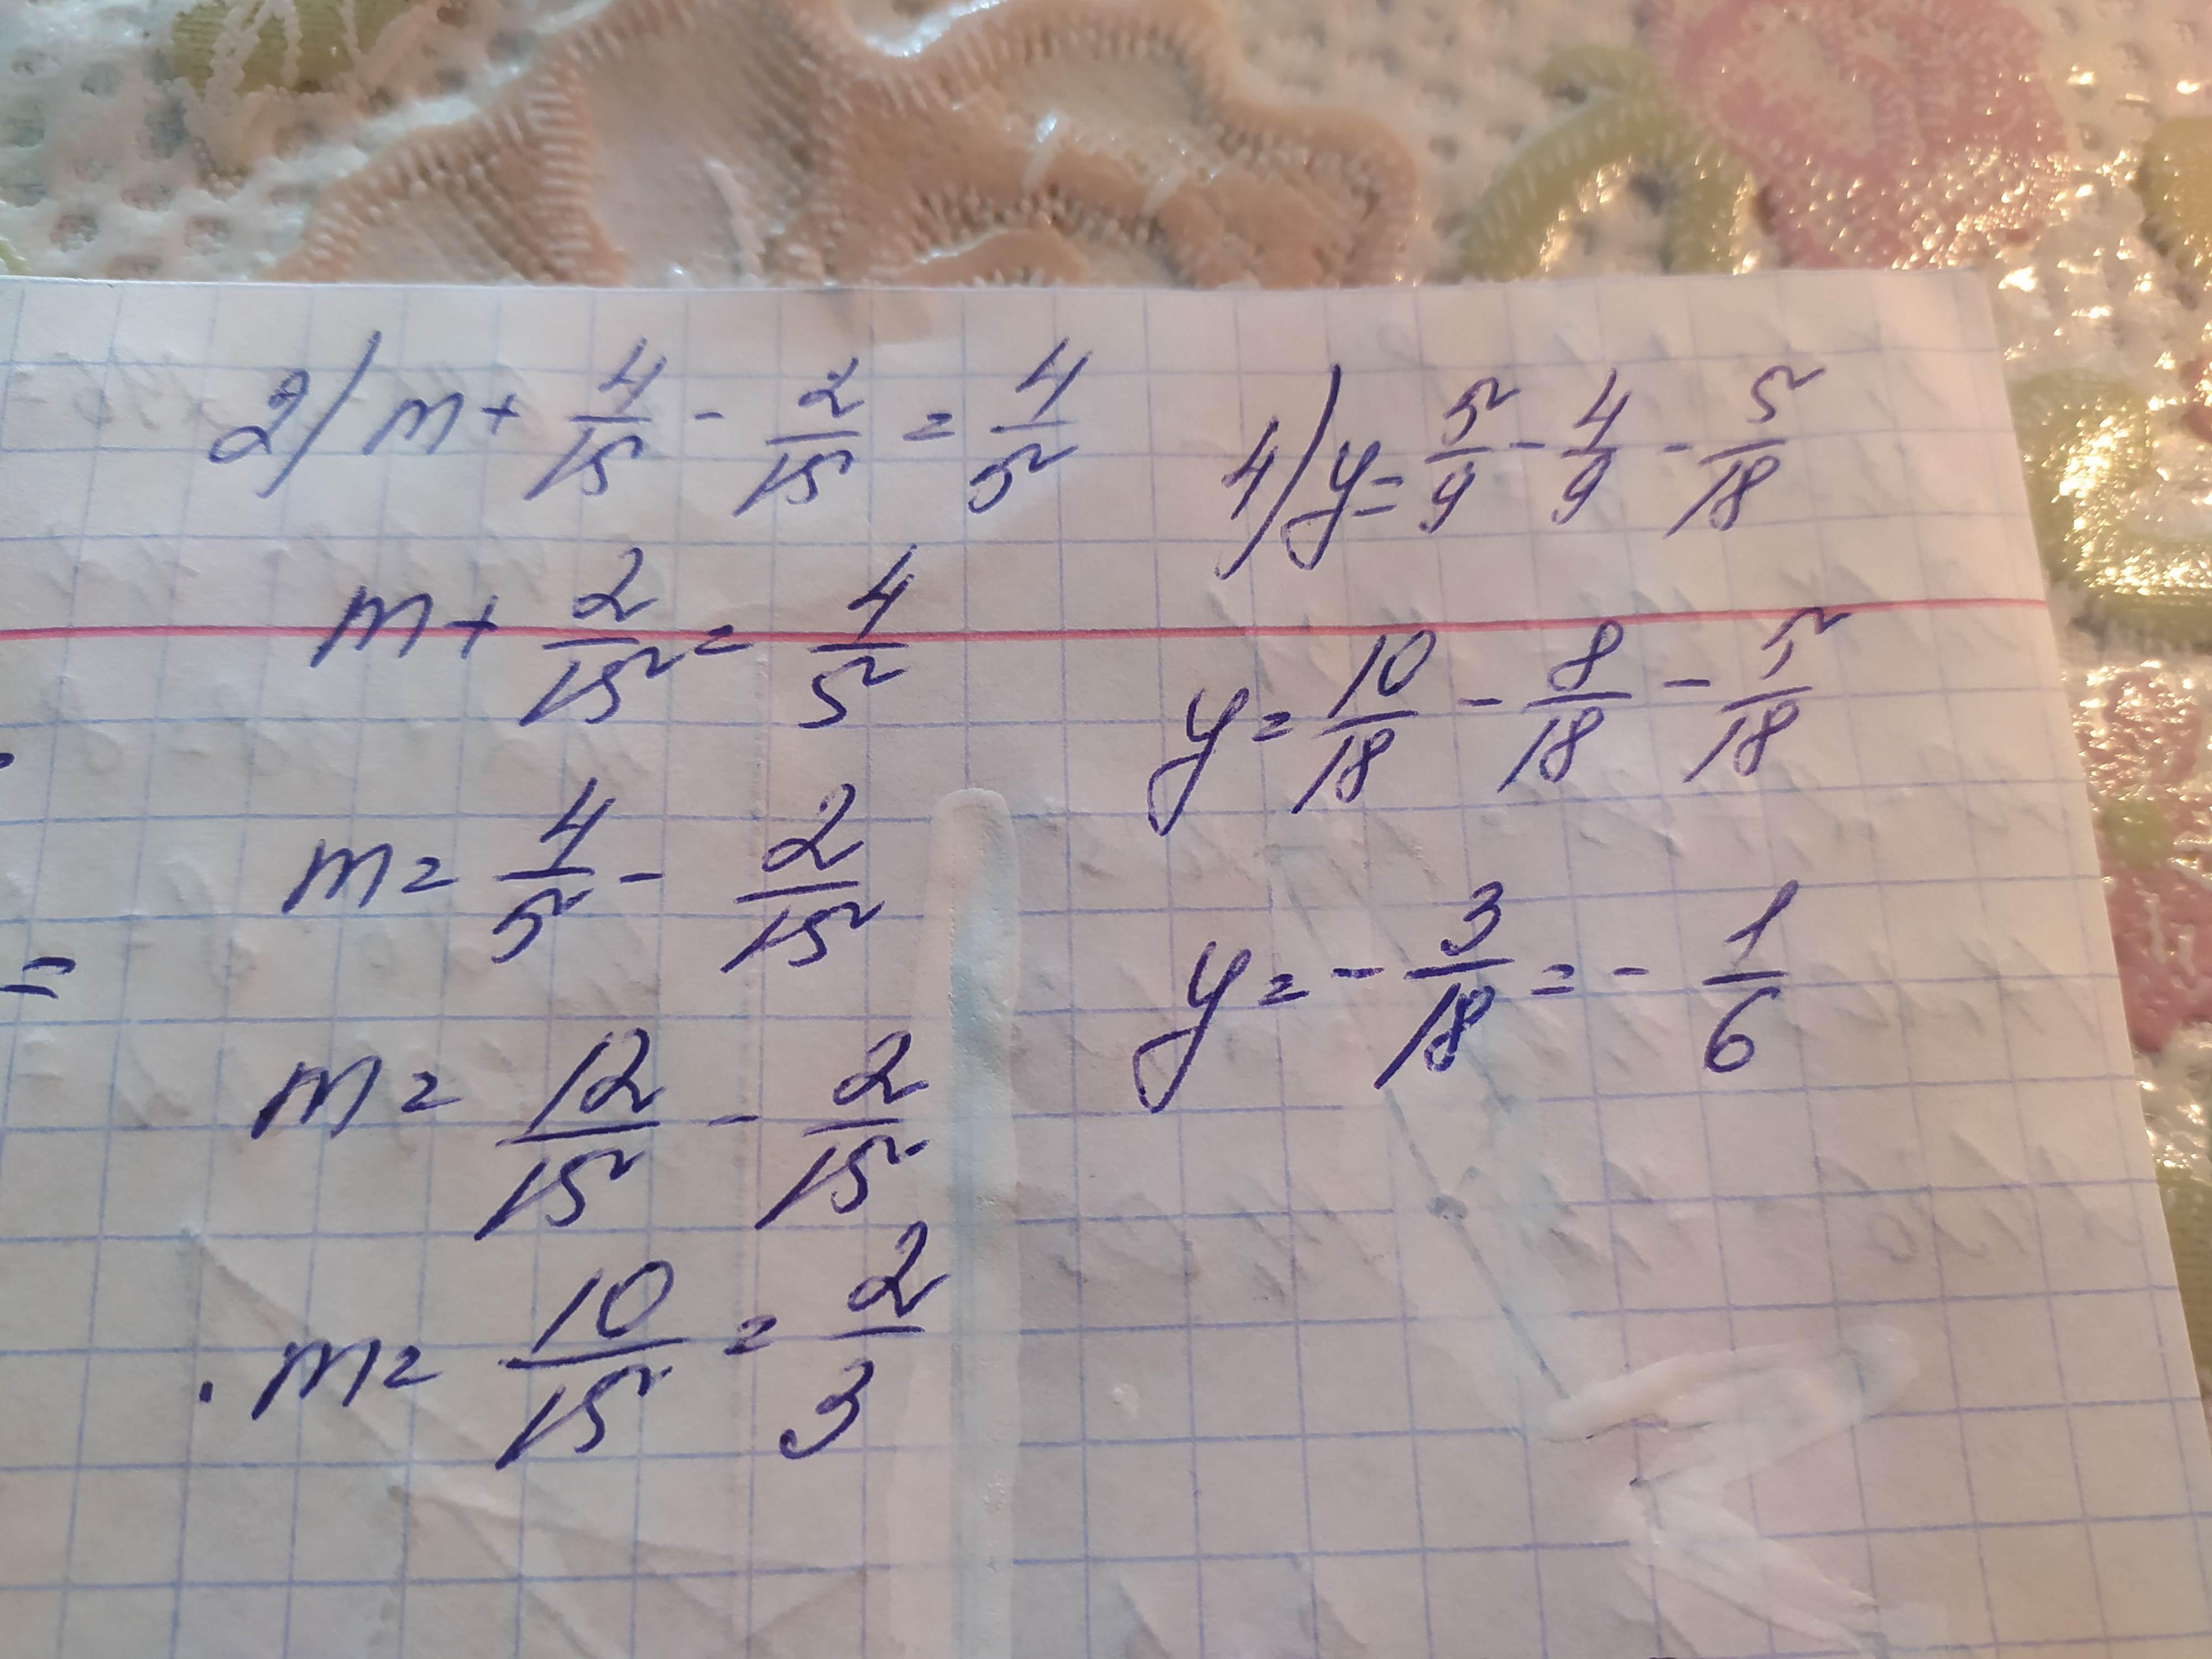 2) m + 4/15 - 2/15 = 4/5
m + 2/15 = 4/5
m = 4/5 - 2/15
m = 12/15 - 2/15
m = 10/15 = 2/3
4) y = 5/9 - 4/9 - 5/18
y = 10/18 - 8/18 - 5/18
y = - 3/18 = - 1/6
=